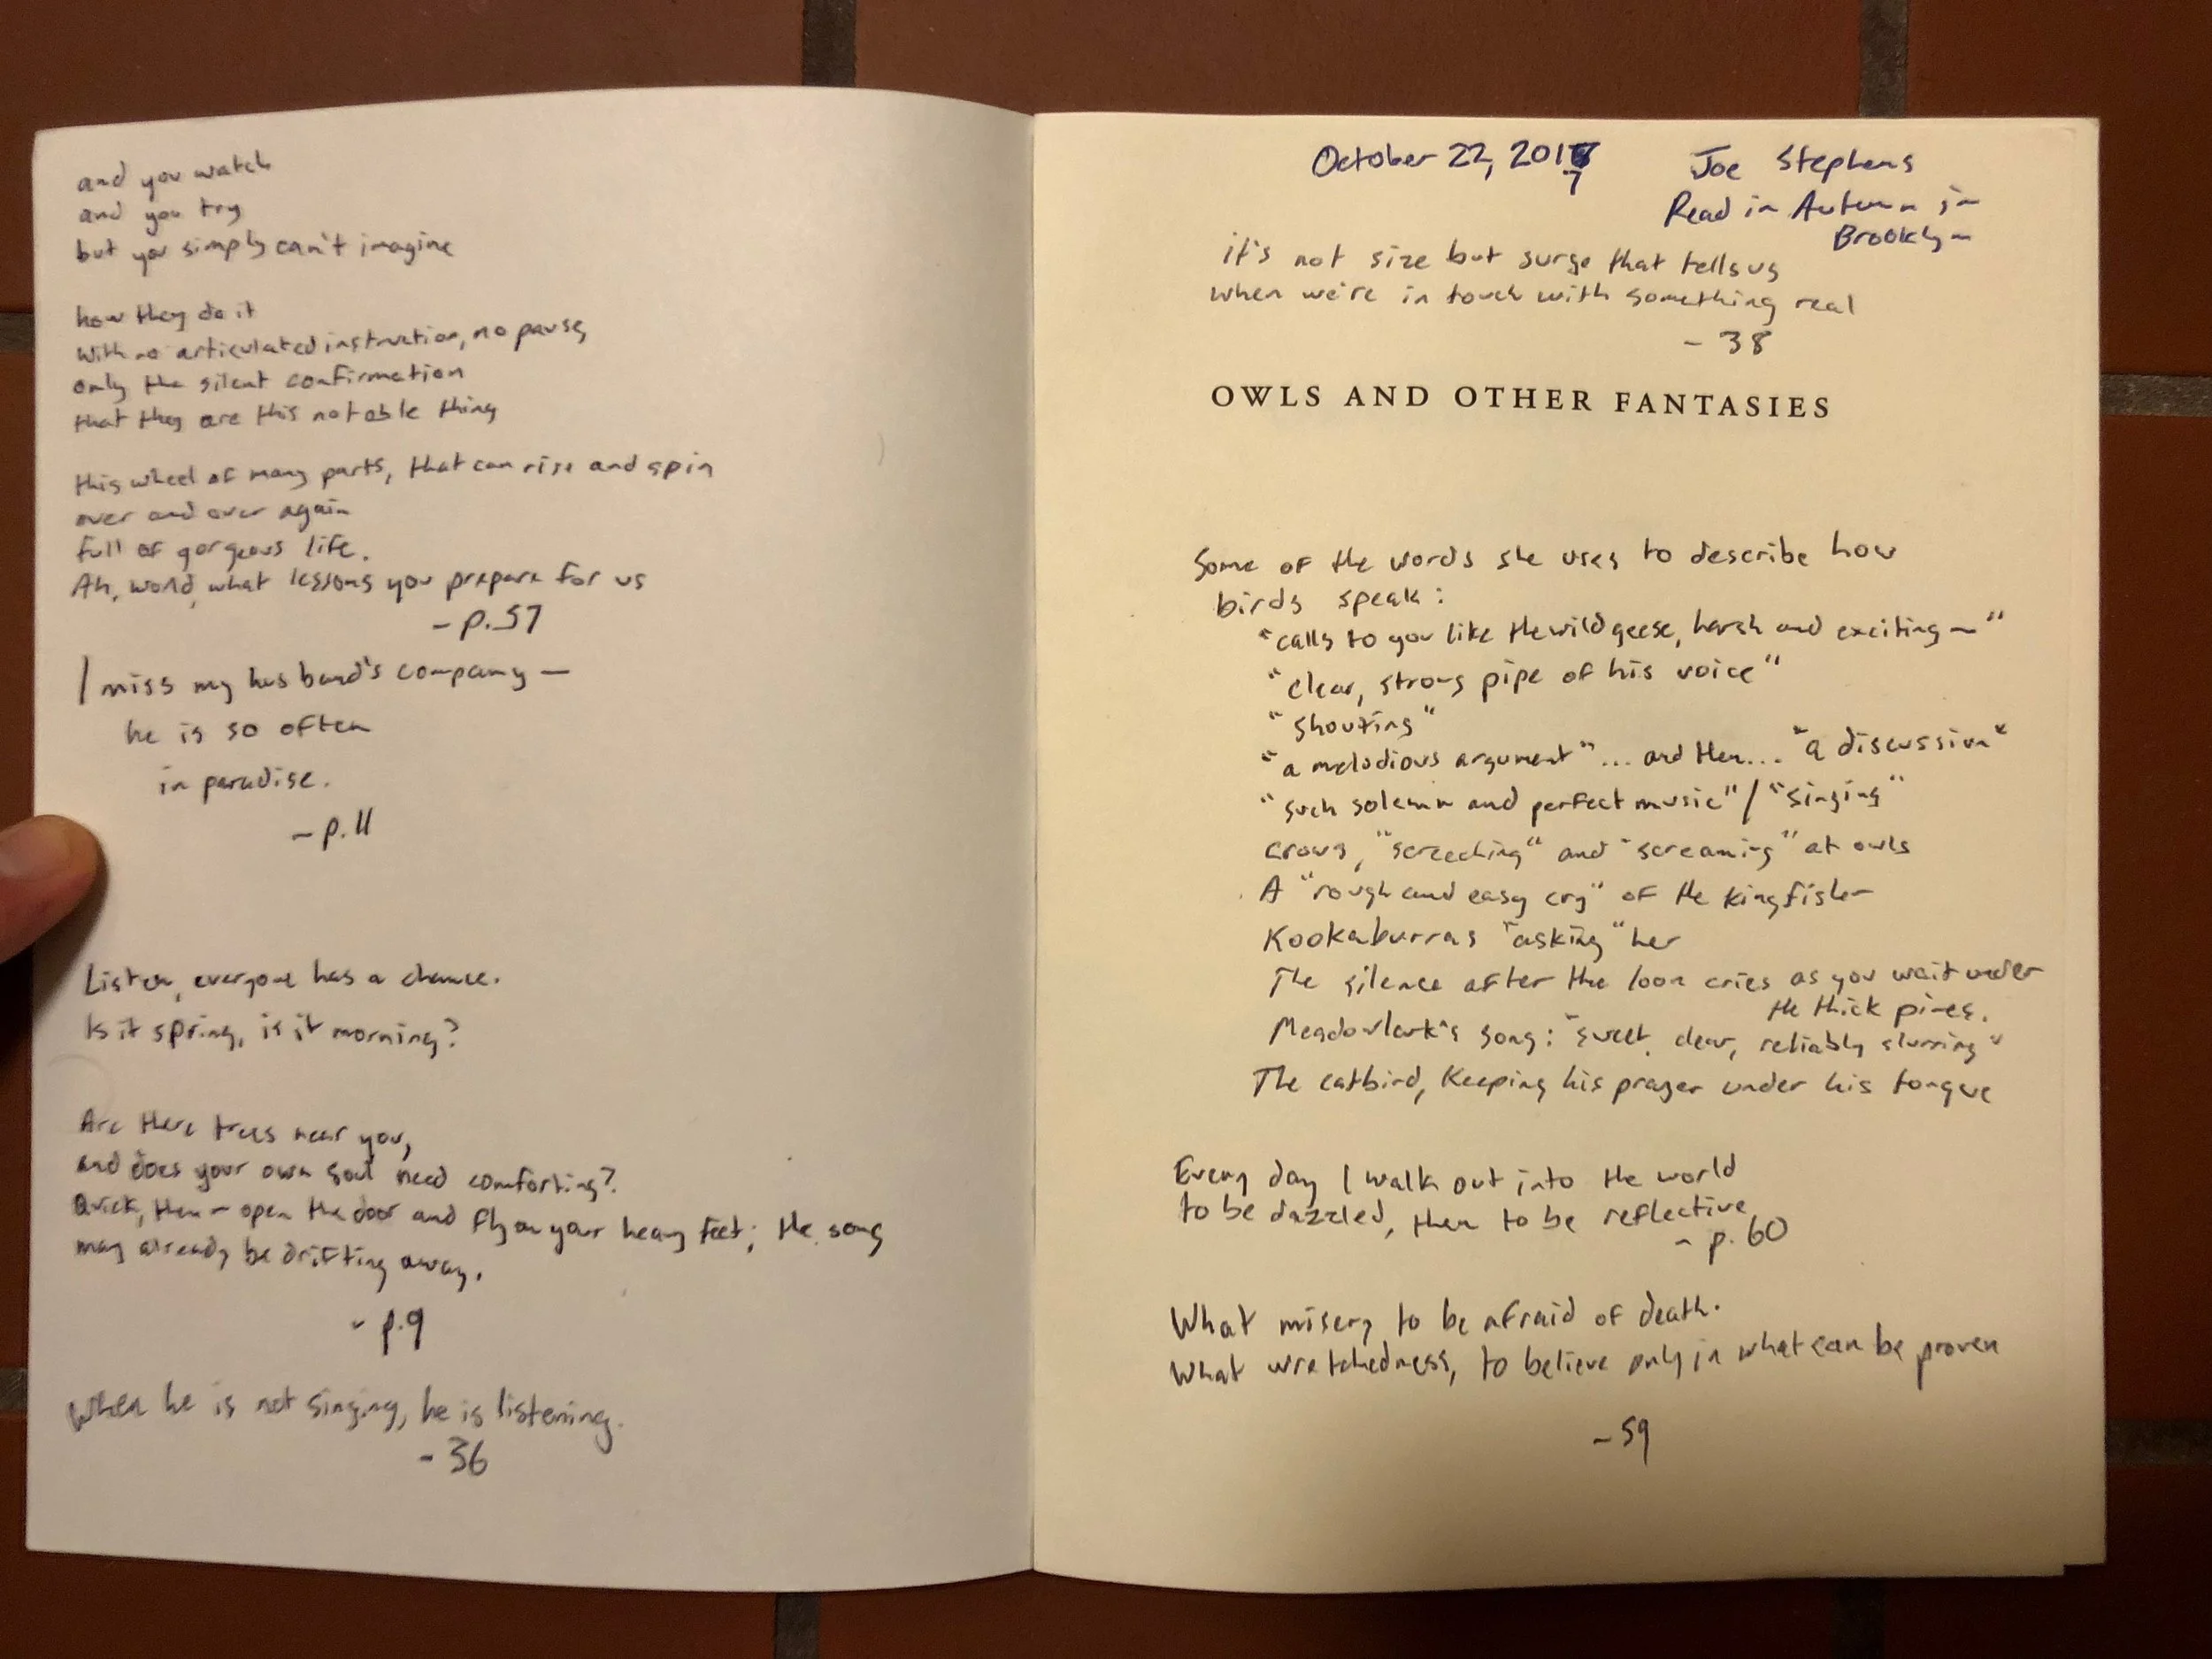 and you watch
and you try
but you simply can't imagine
how they do it
with no articulated instruction, no pause,
only the silent confirmation
that they are this notable thing
this wheel of many parts, that can rise and spin
over and over again
full of gorgeous life.
Ah, world, what lessons you prepare for us
- p.57
I miss my husband's company —
he is so often
in paradise.
- p.11
Listen, everyone has a chance.
Is it spring, is it morning?
Are there trees near you,
and does your own soul need comforting?
Quick, then - open the door and fly on your heavy feet; the song
may already be drifting away.
- p.9
When he is not singing, he is listening.
- 36
October 22, 2017
Joe Stephens
Read in Autumn in
Brooklyn
it's not size but surge that tells us
when we're in touch with something real
- 38
OWLS AND OTHER FANTASIES
Some of the words she uses to describe how
birds speak:
"calls to you like the wild geese, harsh and exciting —"
"clear, strong pipe of his voice"
"shouting"
"a melodious argument"... and then... "a discussion"
"such solemn and perfect music" / "singing"
crows, "screeching" and "screaming" at owls
A "rough and easy cry" of the kingfisher
Kookaburras "asking" her
The silence after the loon cries as you wait under
the thick pines.
Meadowlark's song: "sweet, clear, reliably slurring"
The catbird, keeping his prayer under his tongue
Every day I walk out into the world
to be dazzled, then to be reflective
- p. 60
What misery to be afraid of death.
What wretchedness, to believe only in what can be proven
- 59